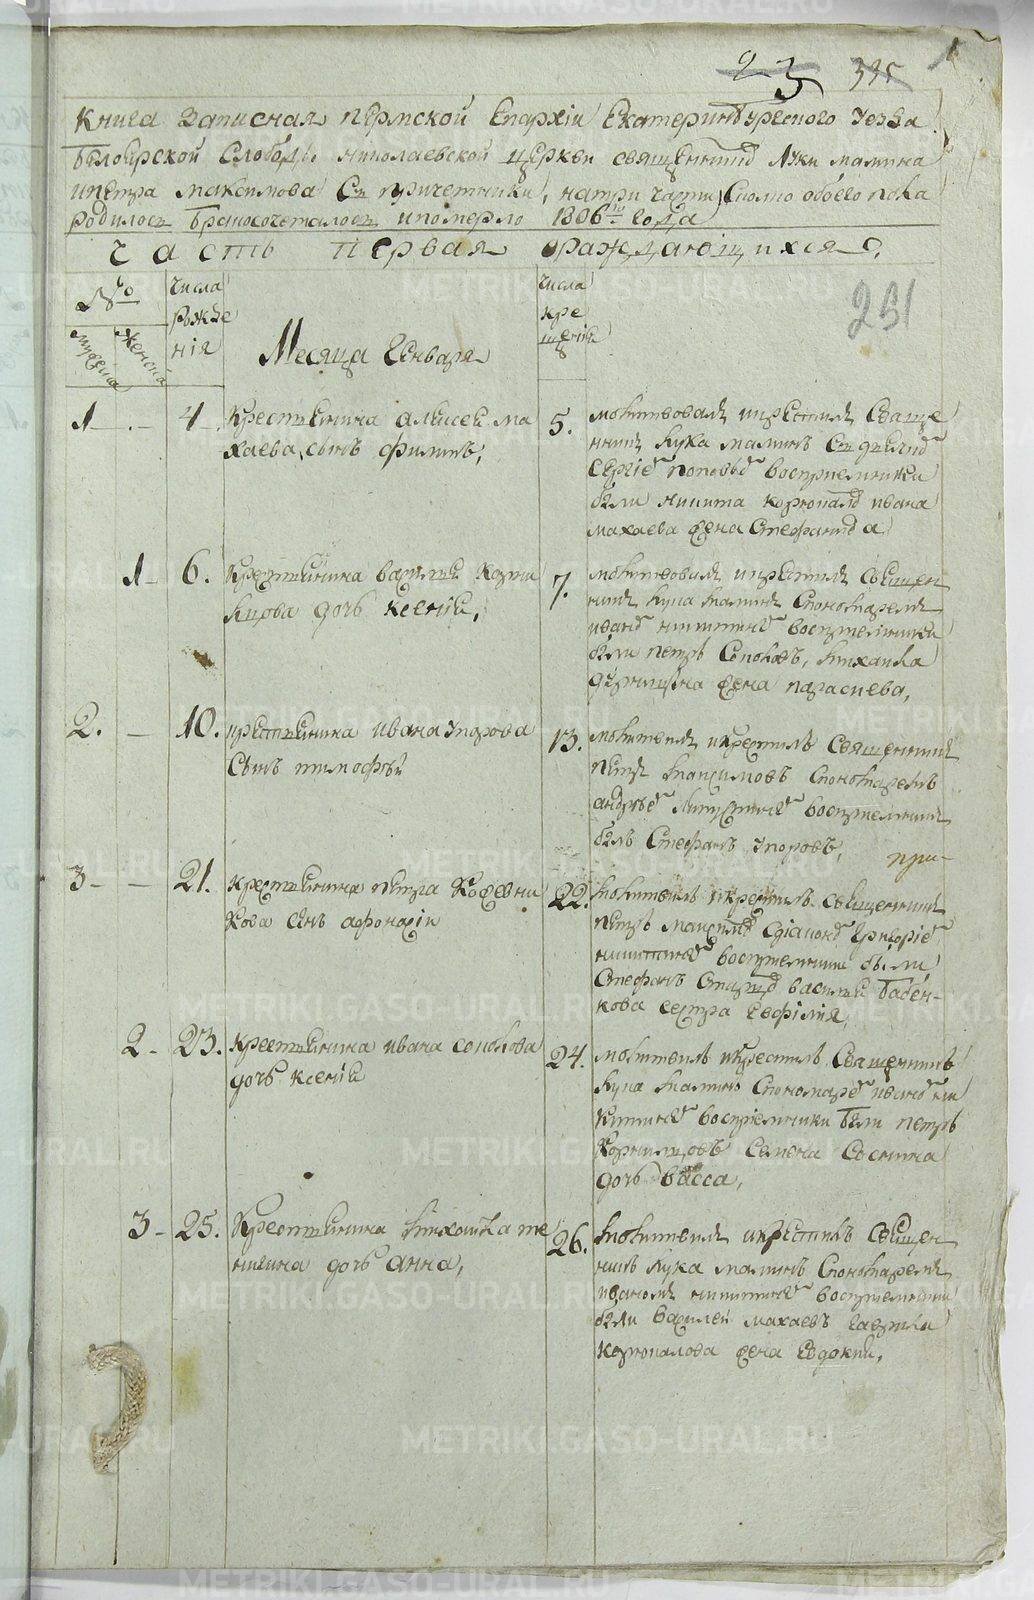 23 395 1
Книга Записная Пермской Епархіи Екатеринбурскаго Уезда
Белоярской Слободы Николаевской церкви священникъ Луки Малина
и Петра Максимова Съ причетники, на три части Сколко обоего пола
родилось бракосочеталось и померло 1806го года
Часть первая о раждающихся
231
№
Мужеска
Женска
числа
рожде
нія
Месяца Генваря
числа
кре
щенія
1 - 4 Крестьянина Алексея Ма
хаева, сынъ Филипъ,
5. молитвовалъ и крестилъ Свяще
нникъ Лука Малинъ Съ
Сергіемъ Поповымъ восприемники
были Никита ивана
Махаева жена Стефанида
1 - 6. Крестьянина Василья
дочь Ксенія,
7. молитвовалъ и крестилъ Священ
никъ Лука Малинъ Спономаремъ
иваномъ Никитинымъ восприемники
были Петръ Соколовъ, Михаила
жена Параскева,
2. - 10. крестьянина ивана Упорова
Сынъ Тимофей
13. молитвилъ и крестилъ Священникъ
Петръ Максимовъ Спономаремъ
андреемъ восприемникъ
былъ Стефанъ Упоровъ,
при-
3 - - 21. крестьянина Петра Кожевни
кова сынъ Афонасій
22. молитвилъ и крестилъ священникъ
Петръ Сдіакономъ Григоріемъ
восприемники были
Стефанъ Василья Бабен-
кова сестра Евфимія,
2 - 23. крестьянина ивана Соколова
дочь Ксенія
24. молитвилъ и крестилъ Священникъ
Лука Малинъ Спономаремъ иваномъ Ни
китинымъ восприемники были Петръ
Корниловъ Семена Соснина
дочь Васса,
3 - 25. Крестьянина Михайла Те
нигина дочь Анна,
26. молитвилъ и крестилъ Священ
никъ Лука Малинъ Спономаремъ
иваномъ Никитинымъ восприемники
были Василей Махаевъ Гаврила
жена Евдокия,
METRIKI.GASO-URAL.RU